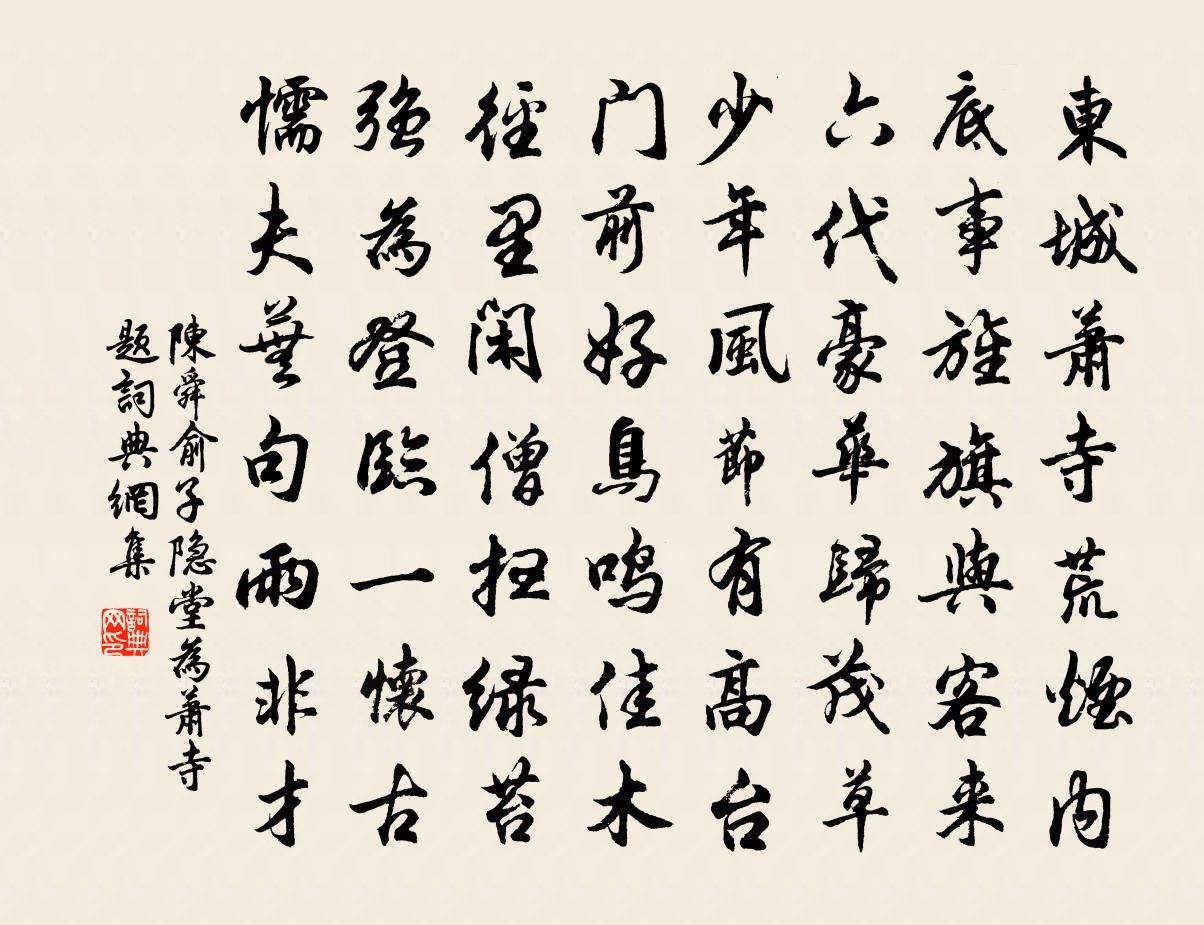 東城蕭寺荒煙内
底事旌旗與客来
六代豪華歸茂草
少年風節有高台
門前好鳥鸣佳木
徑里閑僧扫绿苔
強為登臨一懷古
懦夫蕪句兩非才
陳舜俞子隐堂為蕭寺
题詞典網集
詞典网印